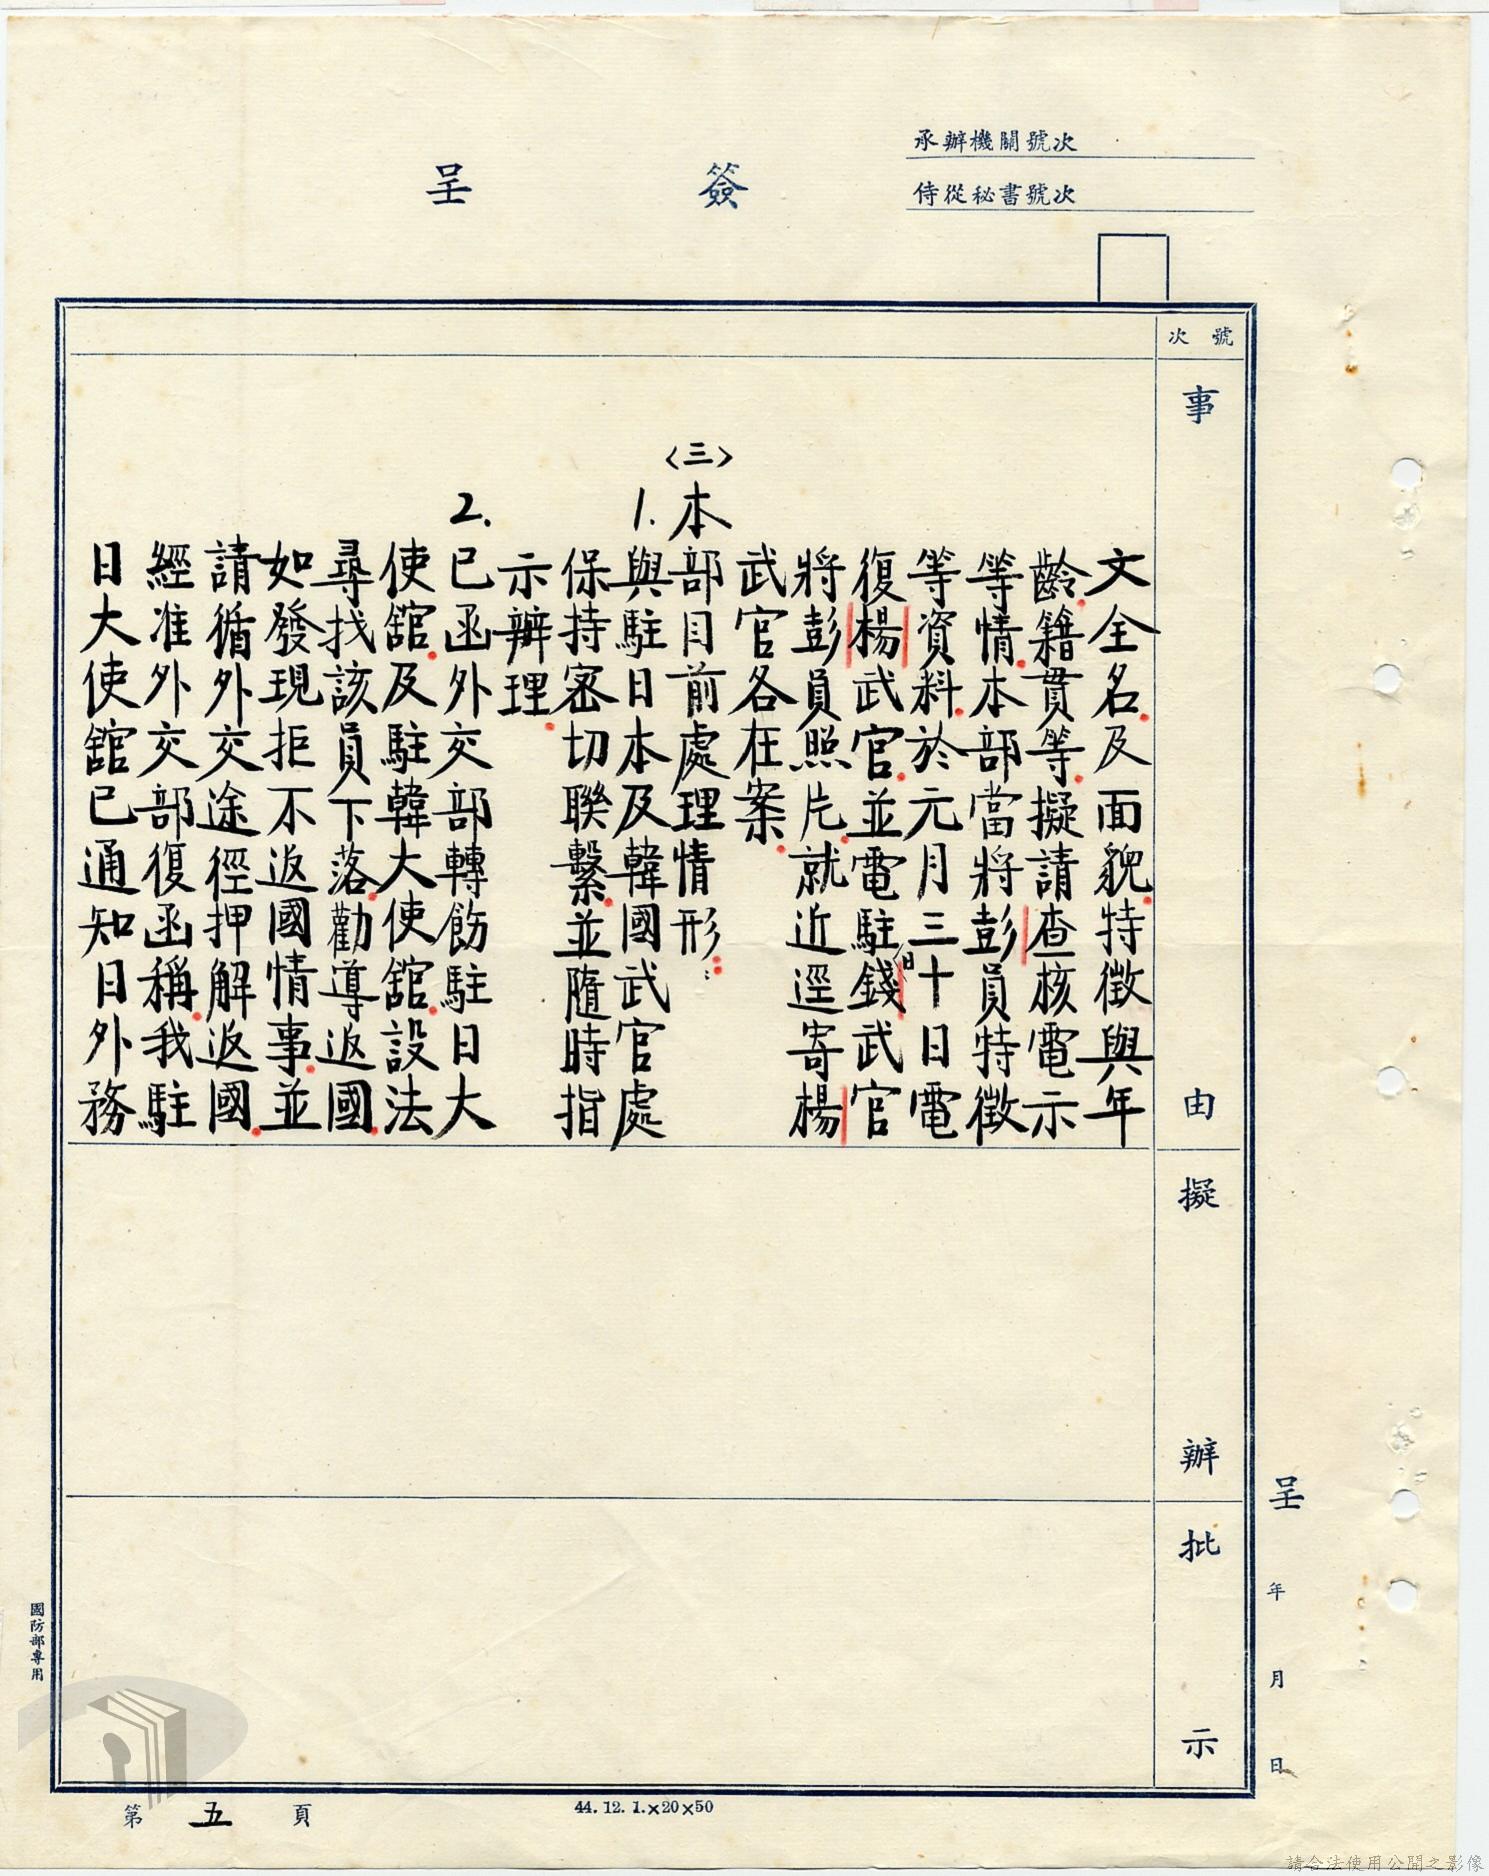 承辦機關號次
侍從秘書號次
簽呈
號次
事由
擬辦
批示
文全名及面貌特徵與年
齡籍貫等擬請查核電示
等情本部當將彭員特徵
等資料於元月三十日電
復楊武官並電駐日錢武官
將彭員照片就近逕寄楊
武官各在案
〈三〉本部目前處理情形：
1.與駐日本及韓國武官處
保持密切聯繫並隨時指
示辦理
2.已函外交部轉飭駐日大
使館及駐韓大使館設法
尋找該員下落勸導返國
如發現拒不返國情事並
請循外交途徑押解返國
經准外交部復函稱我駐
日大使館已通知日外務
呈 年 月 日
國防部專用
第五頁
44.12.1.×20×50
請合法使用公開之影像